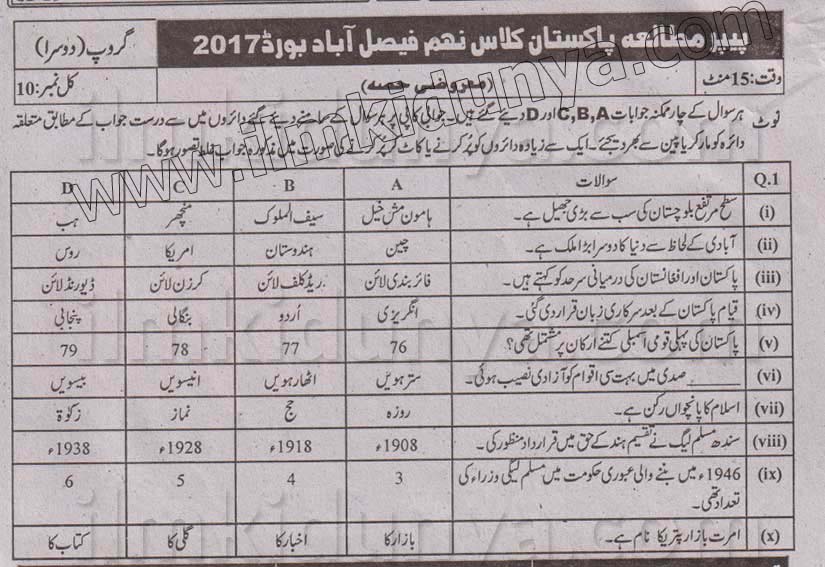 پیپر مطالعہ پاکستان کلاس نہم فیصل آباد بورڈ 2017 گروپ (دوسرا)
وقت: 15 منٹ (معروضی حصہ) کل نمبر: 10
نوٹ ہر سوال کے چار ممکنہ جوابات C,B,A اور D دیے گئے ہیں۔ جوابی کاپی پر ہر سوال کے سامنے دیے گئے دائروں میں سے درست جواب کے مطابق متعلقہ
دائرہ کو مارکر یا پین سے بھر دیجئے۔ ایک سے زیادہ دائروں کو پُر کرنے یا کاٹ کر پُر کرنے کی صورت میں مذکورہ جواب غلط تصور ہوگا۔
Q.1 سوالات A B C D
(i) سطح مرتفع بلوچستان کی سب سے بڑی جھیل ہے۔ ہامون مش خیل سیف الملوک منچھر ہب
(ii) آبادی کے لحاظ سے دنیا کا دوسرا بڑا ملک ہے۔ چین ہندوستان امریکا روس
(iii) پاکستان اور افغانستان کی درمیانی سرحد کو کہتے ہیں۔ فائر بندی لائن ریڈ کلف لائن کرزن لائن ڈیورنڈ لائن
(iv) قیام پاکستان کے بعد سرکاری زبان قرار دی گئی۔ انگریزی اُردو بنگالی پنجابی
(v) پاکستان کی پہلی قومی اسمبلی کتنے ارکان پر مشتمل تھی؟ 76 77 78 79
(vi) ________ صدی میں بہت سی اقوام کو آزادی نصیب ہوئی۔ سترھویں اٹھارہویں انیسویں بیسویں
(vii) اسلام کا پانچواں رکن ہے۔ روزہ حج نماز زکوۃ
(viii) سندھ مسلم لیگ نے تقسیم ہند کے حق میں قرارداد منظور کی۔ 1908ء 1918ء 1928ء 1938ء
(ix) 1946ء میں بننے والی عبوری حکومت میں مسلم لیگی وزراء کی 3 4 5 6
تعداد تھی۔
(x) امرت بازار پتریکا نام ہے۔ بازار کا اخبار کا گلی کا کتاب کا
www.ilmkidunya.com
ilmkidunya.com
ilmkidunya.com
ilmkidunya.com